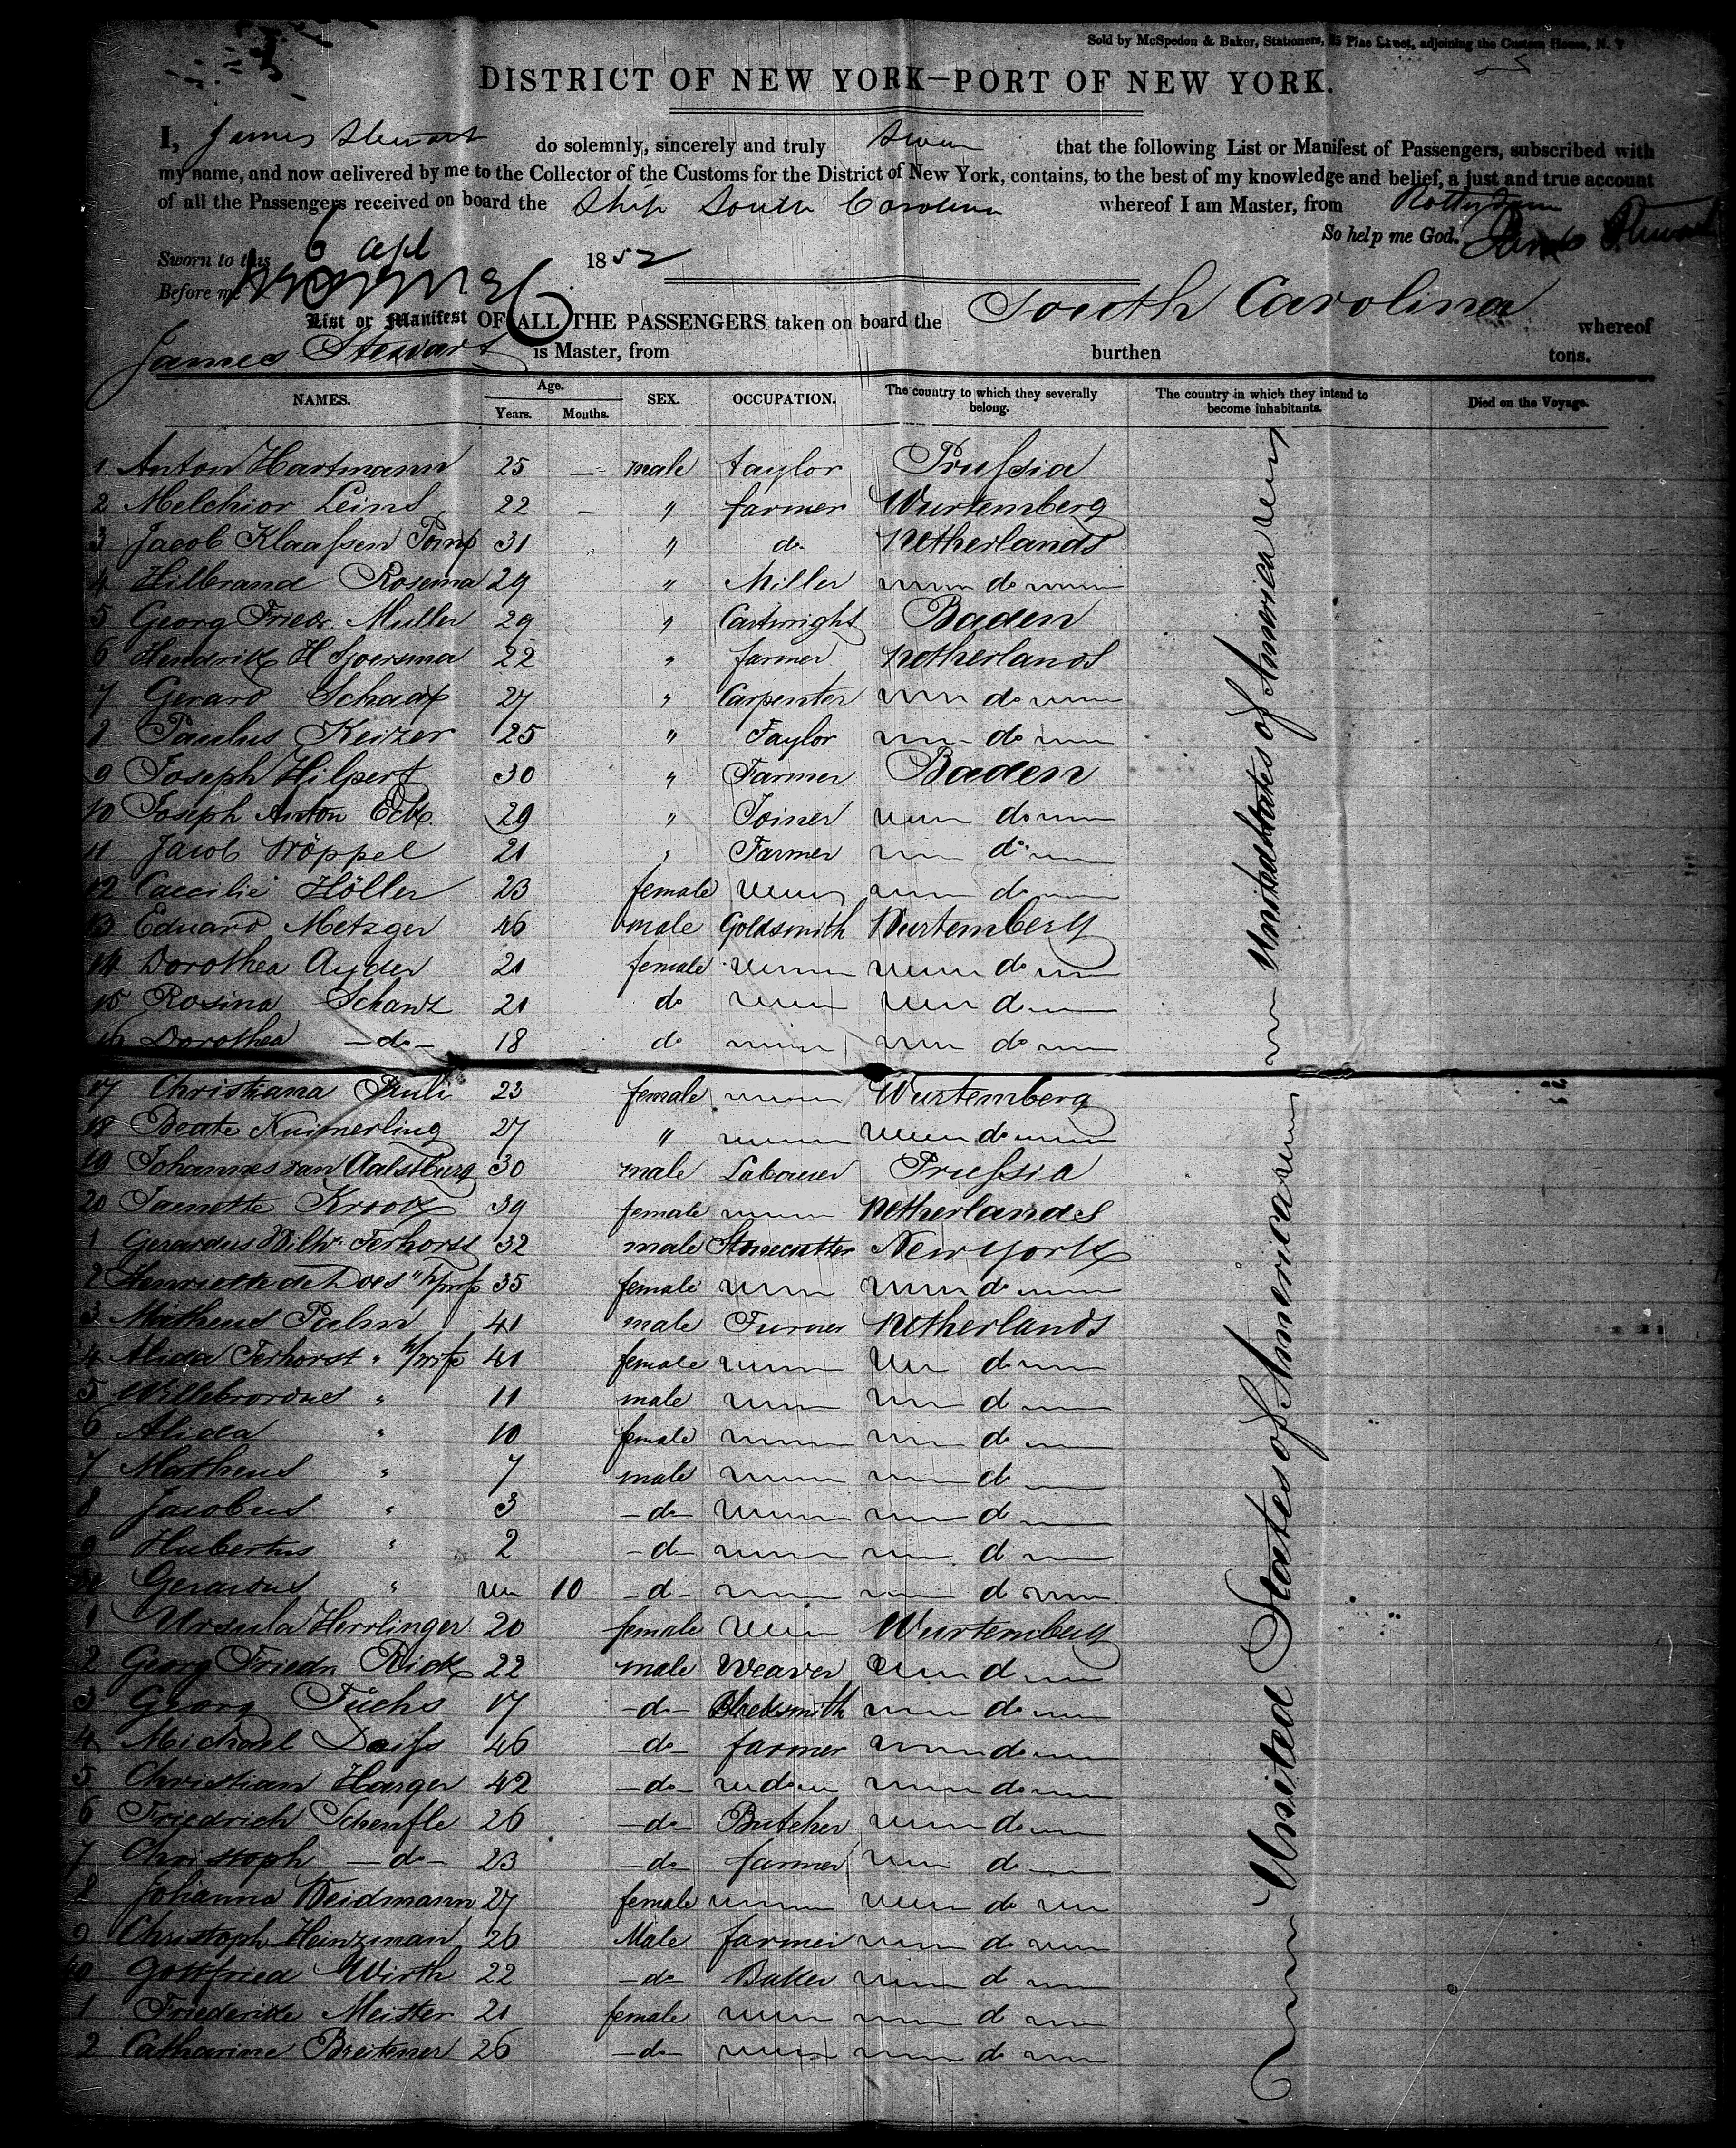 Sold by McSpedon & Baker, Stationers, 25 Pine Street, adjoining the Custom House, N. Y
DISTRICT OF NEW YORK—PORT OF NEW YORK.
I, James Stewart do solemnly, sincerely and truly Swear that the following List or Manifest of Passengers, subscribed with
my name, and now delivered by me to the Collector of the Customs for the District of New York, contains, to the best of my knowledge and belief, a just and true account
of all the Passengers received on board the Ship South Carolina whereof I am Master, from Rotterdam
So help me God. James Stewart
Sworn to this 6 Apl 1852
Before me
List or Manifest OF ALL THE PASSENGERS taken on board the South Carolina whereof
James Stewart is Master, from burthen tons.
NAMES. Age. Years. Months. SEX. OCCUPATION. The country to which they severally belong. The country in which they intend to become inhabitants. Died on the Voyage.
1 Anton Hartmann 25 — male taylor Prussia
2 Melchior Leins 22 — " farmer Wurtemberg
3 Jacob Klaassen 31 " do Netherlands
4 Hilbrand Rosema 29 " Miller do
5 Georg Friedr. Muller 29 " Cartwright Baden
6 Hendrik H Sjoersma 22 " farmer Netherlands
7 Gerard Schaap 27 " Carpenter do
8 Paulus Keizer 25 " Taylor do
9 Joseph Hilpert 30 " Farmer Baden
10 Joseph Anton Eck 29 " Joiner do
11 Jacob Tröppel 21 " Farmer do
12 Caecilie Höller 23 female do
13 Eduard Metzger 46 male Goldsmith Wurtemberg
14 Dorothea Ayder 21 female do
15 Rosina Schanz 21 do do
16 Dorothea —do— 18 do do
United States of America
17 Christiana 23 female Wurtemberg
18 Beate Kuimerling 27 " do
19 Johannes van Aalstburg 30 male Labourer Prussia
20 Jaenette Krook 39 female Netherlands
1 Gerardus Wilh. Terhorst 32 male Stonecutter New York
2 Henriette de Does " h/wife 35 female do
3 Matheus Palm 41 male Turner Netherlands
4 Alida Terhorst " h/wife 41 female do
5 Willebrordus " 11 male do
6 Alida " 10 female do
7 Matheus " 7 male do
8 Jacobus " 3 —do— do
9 Hubertus " 2 —do— do
30 Gerardus " 10 —do— do
1 Ursula Herrlinger 20 female Wurtemberg
2 Georg Friedr Rick 22 male Weaver do
3 Georg Fuchs 17 —do— Blacksmith do
4 Michael Daiss 46 —do— farmer do
5 Christian Harger 42 —do— do do
6 Friedrich Schenfle 26 —do— Butcher do
7 Christoph —do— 23 —do farmer do
8 Johanna Weidmann 27 female do
9 Christoph Heinzman 26 Male farmer do
40 Gottfried Wirth 22 —do— Baker do
1 Friederike Meister 21 female do
2 Catharine Breitener 26 —do— do
United States of America